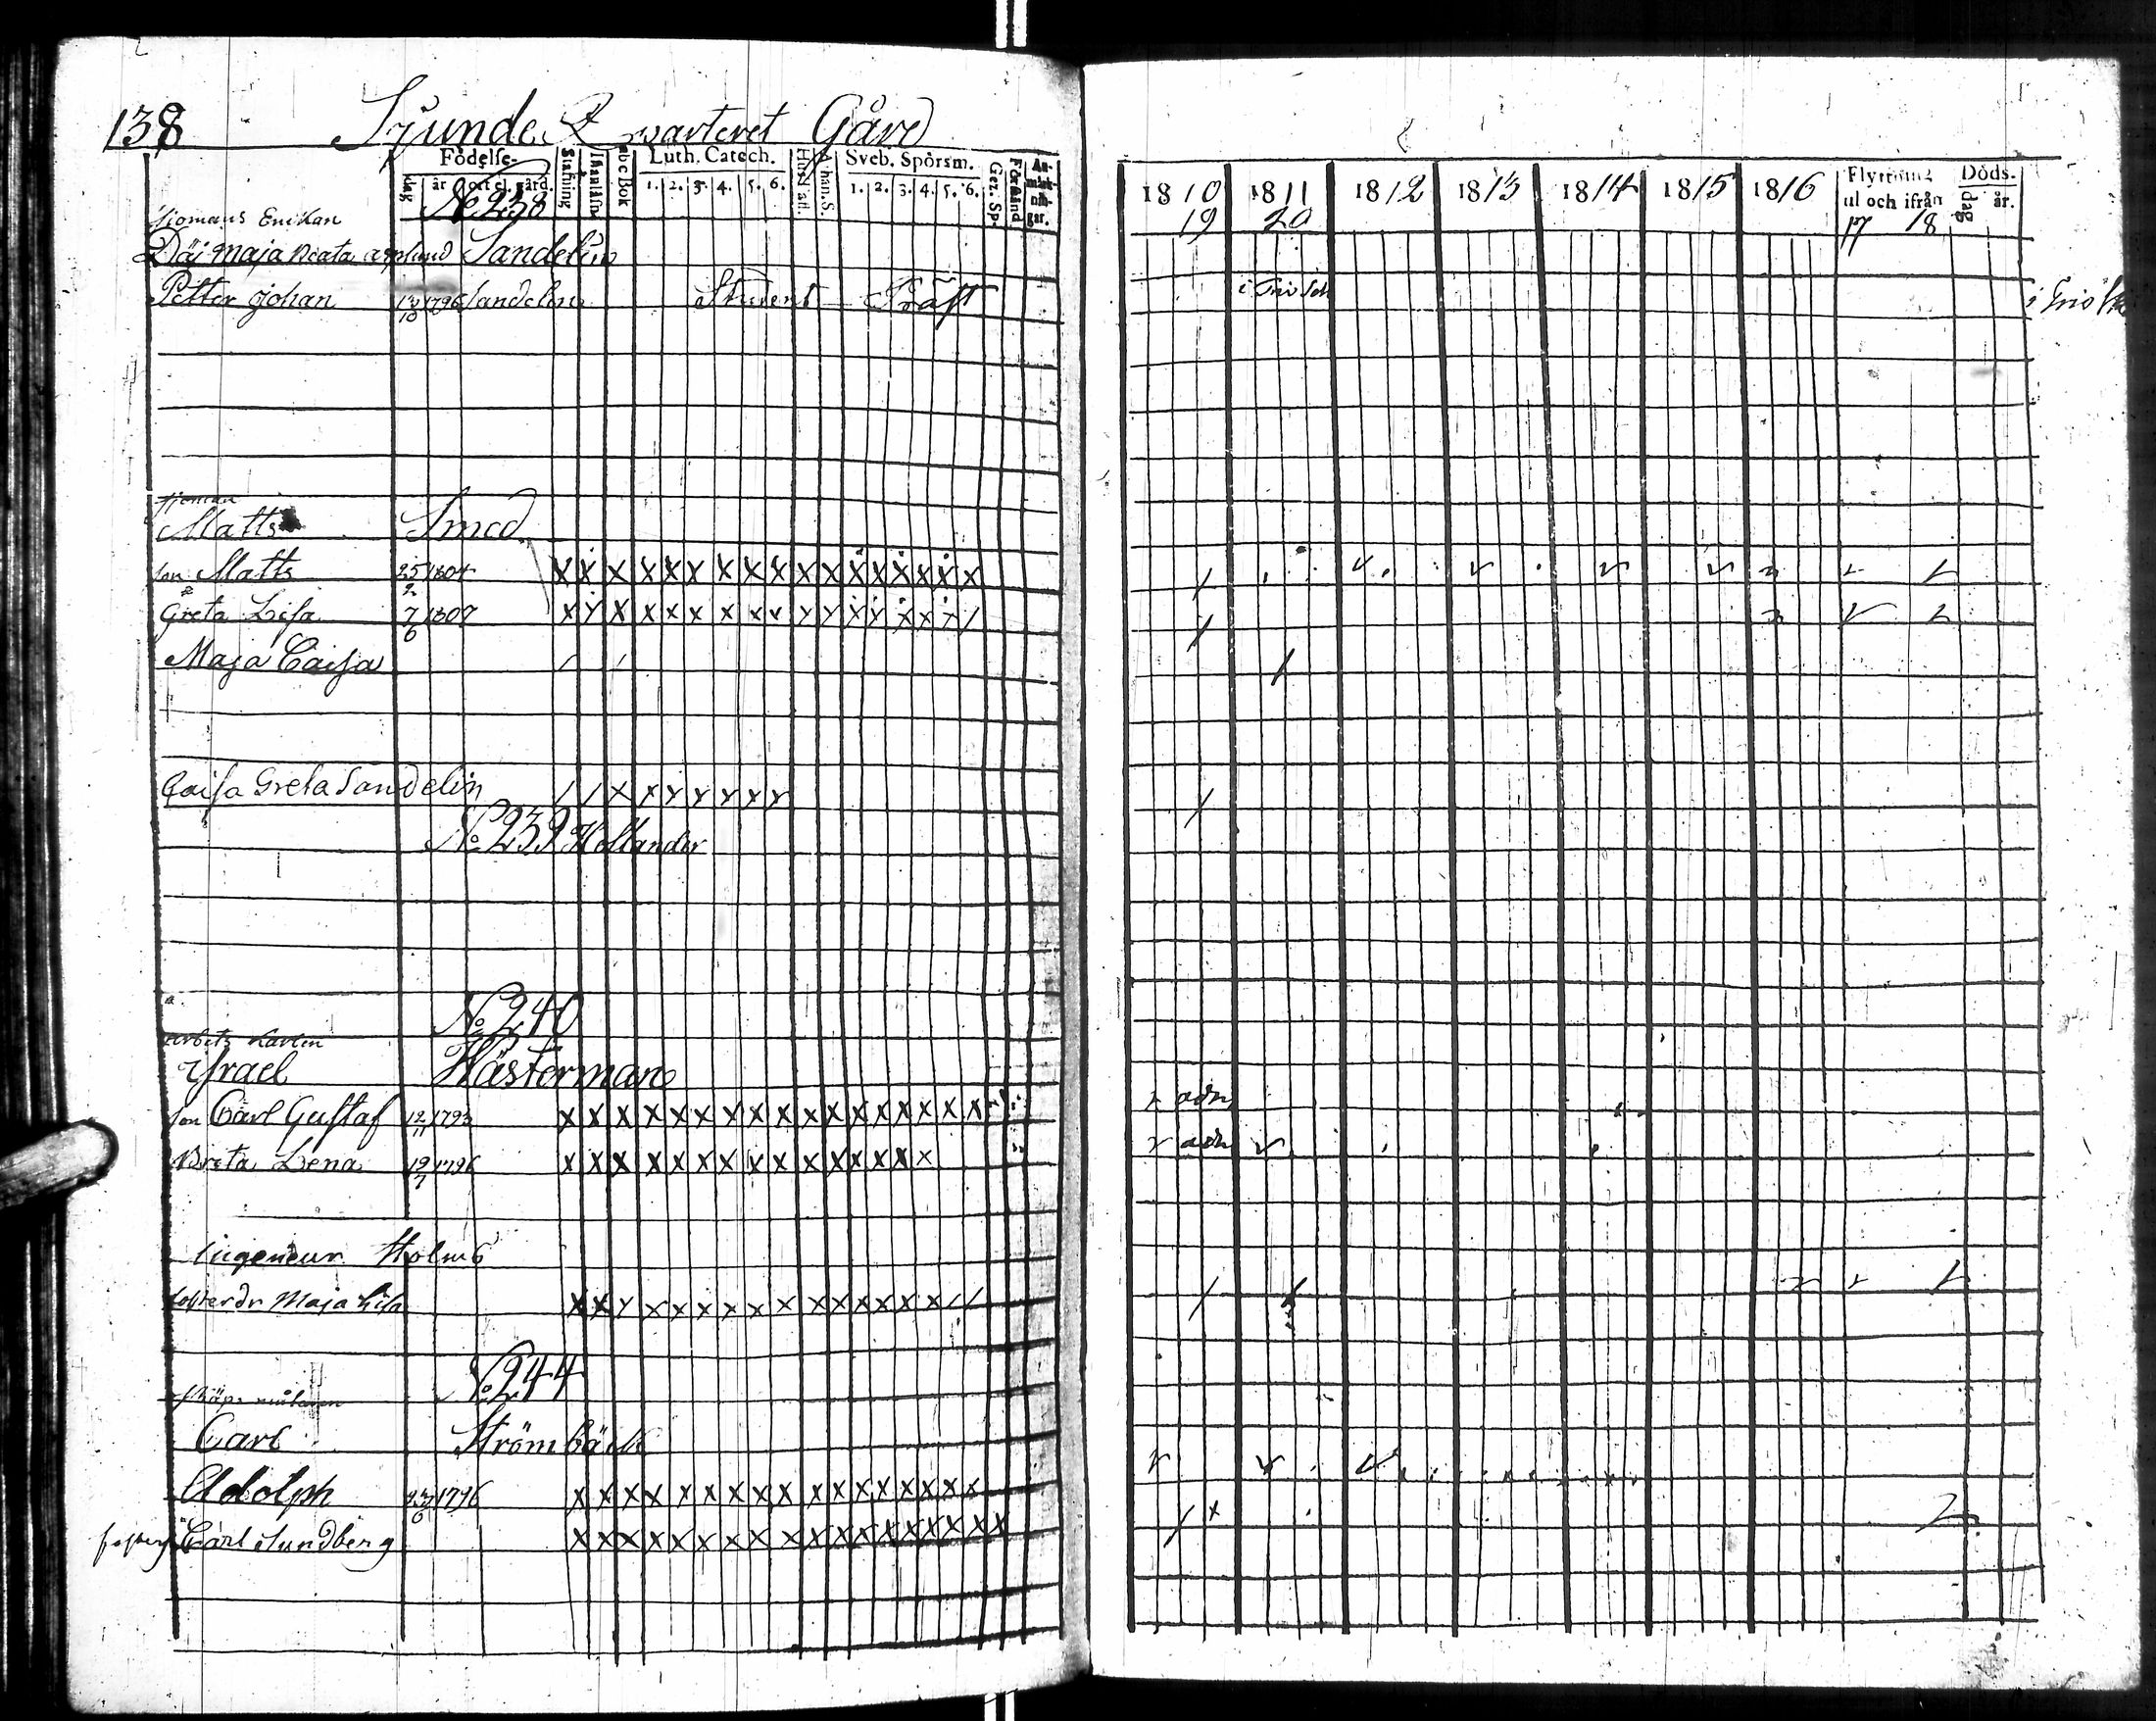 138 Sjunde Qwarteret Gård
Födelse- Stafning Innanläsn abc Bok Luth. Catech. Hust. Sveb. Spörsm. Gez. Sp. Förstånd An-märk-nin-gar.
dag år ort el. gård. 1. 2. 3. 4. 5. 6. Athan. S. 1. 2. 3. 4. 5. 6.
No 238
Sjömans Enckan
Maja Beata Asplund Sandelin
Petter Johan 13/10 1796 Sandelin Student Präst
sjöman
Matts Smed
son Matts 25/2 1804
Greta Lisa 7/6 1807
Maja Caisa
Caisa Greta Sandelin
No 239 Hollander
No 240
arbets karlen
Israel Wästerman
son Carl Gustaf 12/11 1793
Breta Lena 19/7 1796
Ingeneur Holm
fosterdr Maja Lisa
No 244
Carl Strömbäck
Adolph 23/6 1796
Carl Sundberg
1810 1811 1812 1813 1814 1815 1816 Flyttning til och ifrån Döds-
19 20 17 18 dag år.
i Triv Sch
i Triv Sch
adm
adm